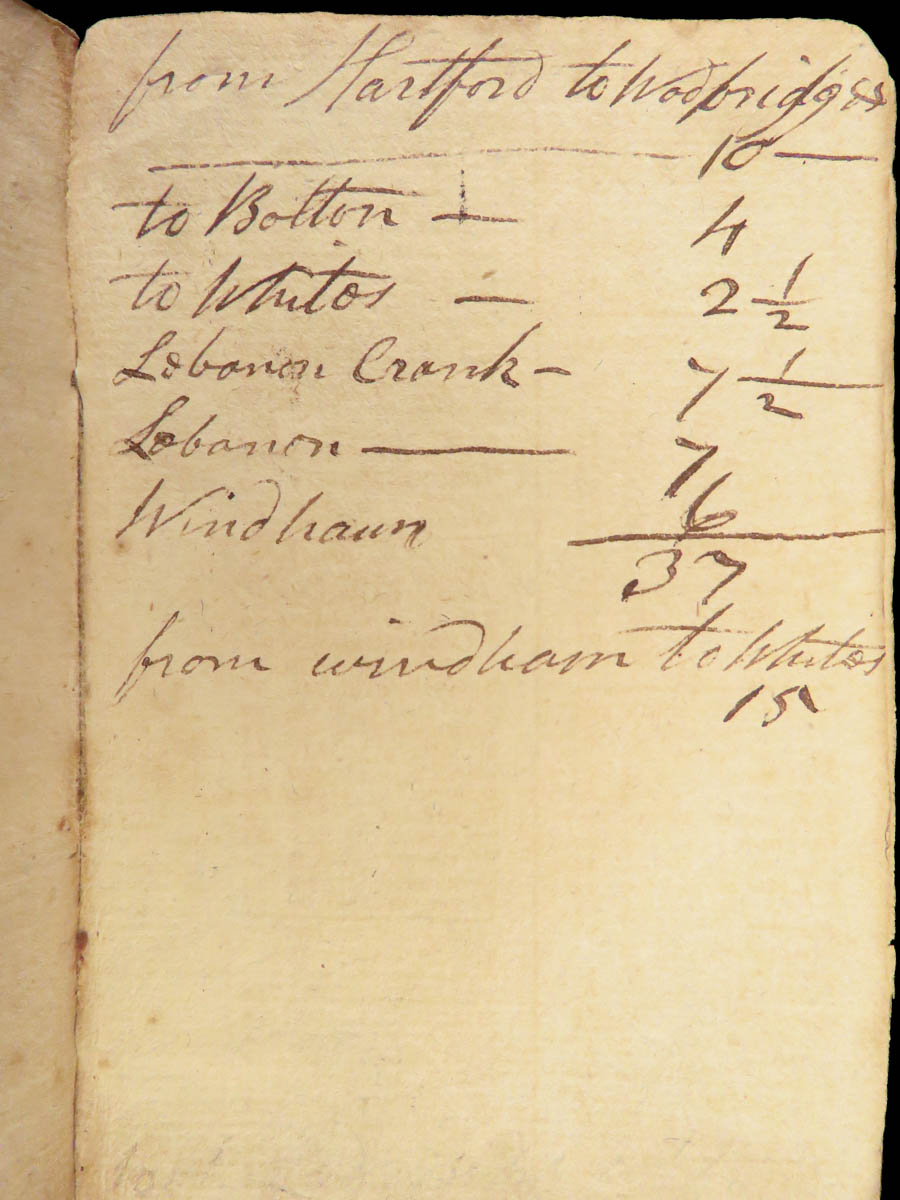 from Hartford to Wodbridges
10 —
to Bolton — 4
to Whites — 2 1/2
Lebanon Crank — 7 1/2
Lebanon — 7
Windham 6
37
from windham to Whites
15